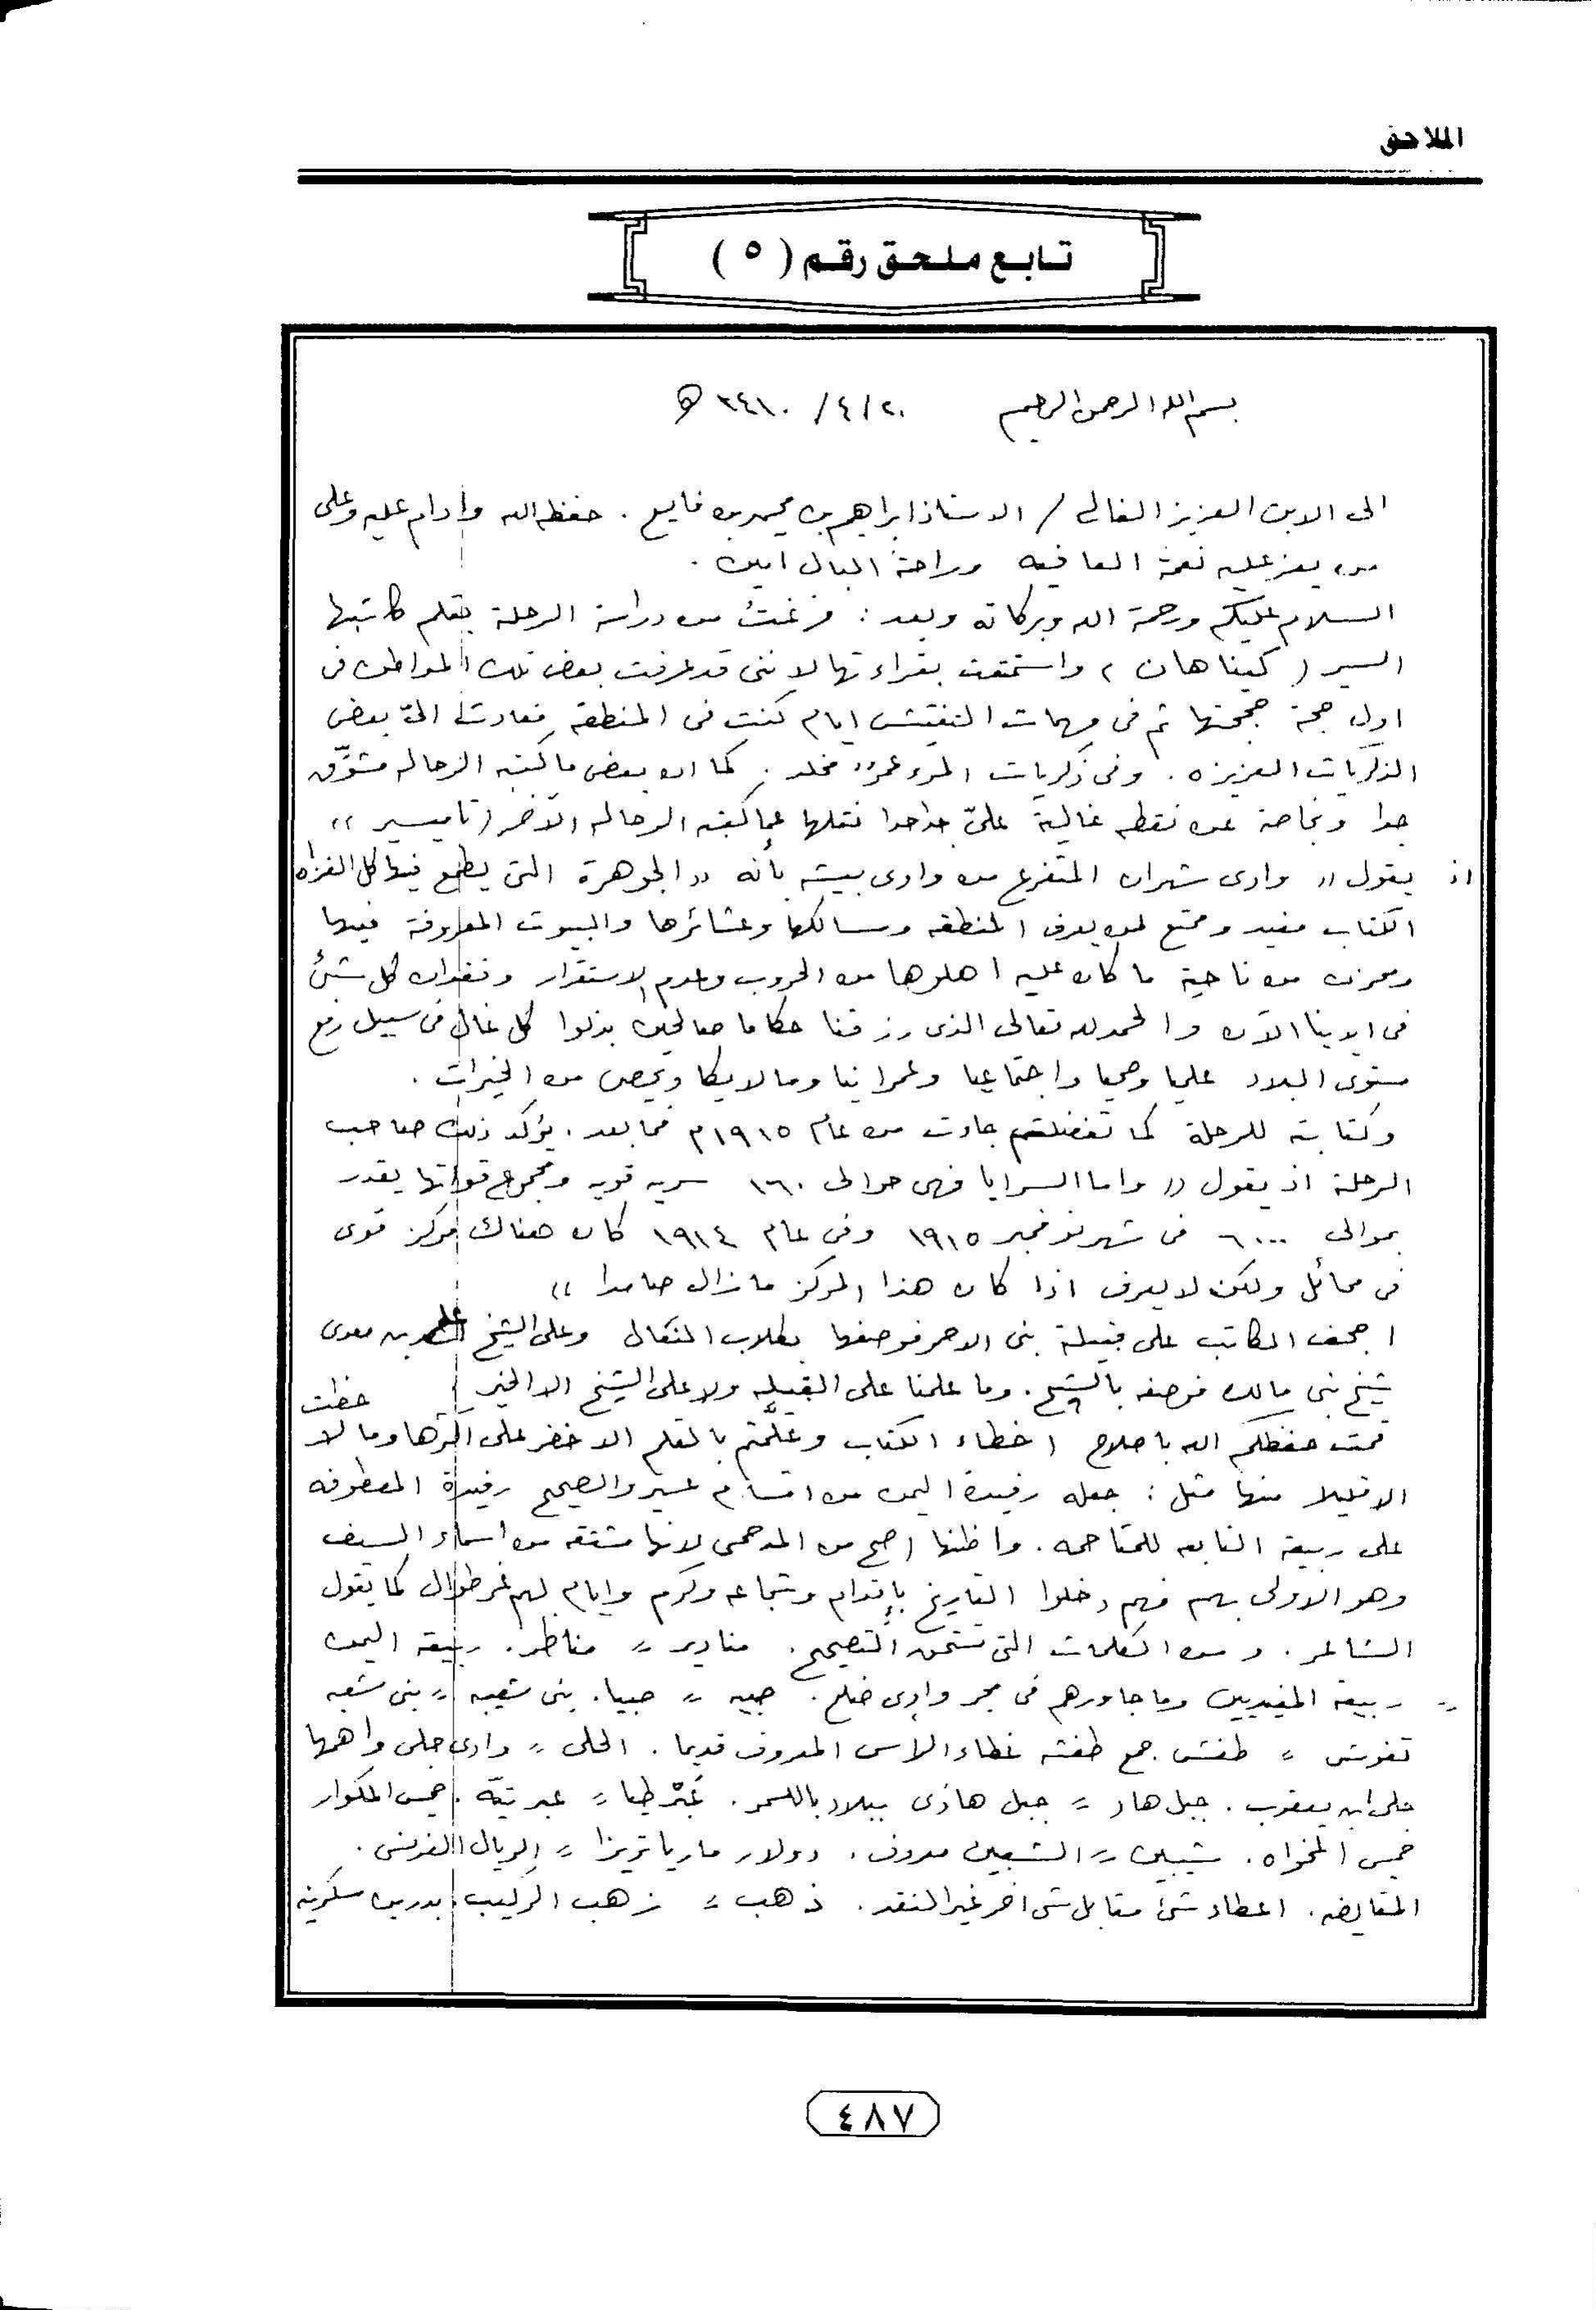 الملاحق
تابع ملحق رقم ( ٥ )
بسم الله الرحمن الرحيم ٢٠/٤/
الى الابن العزيز الغالى / الاستاذ ابراهيم بن محمد بن فايع . حفظه الله وادام عليه وعلى
من يعز عليه نعمة العافيه وراحة البال امين .
السلام عليكم ورحمة الله وبركاته وبعد : فرغتُ من دراسة الرحلة بقلم كاتبها
السير ( كيناهان ) واستمتعت بقراءتها لاننى قد عرفت بعض تلك المواطن فى
اول حجة حججتها ثم فى مهمات التفتيش ايام كنت فى المنطقه فعادت الىّ بعض
الذكريات العزيزه . وفى ذكريات المرء عمرٌ مخلد . كما ان بعض ما كتبه الرحاله مشوّق
جدا وبخاصة عن نقطه غالية علىّ جدا جدا نقلها عما كتبه الرحاله الآخر ( تاميسير ))
اذ يقول (( وادى شهران المتفرع من وادى بيشه بأنه (( الجوهرة التى يطمع فيها كل الغزاه
الكتاب مفيد وممتع لمن يعرف المنطقه ومسالكها وعشائرها والبيوت المعروفة فيها
ومحزن من ناحية ما كان عليه اهلوها من الحروب وعدم الاستقرار وفقدان كل شئ
فى ايدينا الآن والحمد لله تعالى الذى رزقنا حكاما صالحين بذلوا كل غال فى سبيل رفع
مستوى البلاد علميا وصحيا واجتماعيا وعمرانيا وما لا يكاد يحصى من الخيرات .
وكتابته للرحلة كما تفضلتم جاءت من عام ١٩١٥م فما بعد . يؤكد ذلك صاحب
الرحلة اذ يقول (( واما السرايا فهى حوالى ١٦٠ سريه قويه ومجموع قواتها يقدر
بحوالى ٦٠٠٠ فى شهر نوفمبر ١٩١٥ وفى عام ١٩١٤ كان هناك مركز قوى
فى محائل ولكن لا يعرف اذا كان هذا المركز مازال صامدا ))
اجحف الكاتب على قبيلة بنى الاحمر فوصفها بكلاب المنكال وعلى الشيخ على بن معدى
شيخ بنى مالك فوصفه بالشح . وما علمنا على القبيله ولا على الشيخ الا الخير
قمت حفظكم الله باصلاح اخطاء الكتاب وعلّمتم بالقلم الاخضر على اكثرها وما لاحظت
الا قليلا منها مثل : جعله رفيدة اليمن من اقسام عسير والصحيح رفيدة المعطوفه
على ربيعة التابعه للمتاحمه . واظنها اصح من المدحمى لانها مشتقه من اسماء السيف
وهو الاولى بهم فهم دخلوا التاريخ بإقدام وشجاعه وكرم وايام لهم غر طوال كما يقول
الشاعر . ومن الكلمات التى تستحق التصحيح . منادير = مناظر . ربيعة اليمن
= ربيعة المفيديين وما جاورهم فى مجر وادى ضلع . جبيه = جبيا . بنى شعيبه = بنى شعبه
تفوتش = طفش جمع طفشه غطاء الراس المعروف قديما . الحلى = وادى حلى واهمها
حلى ابن يعقوب . جبل هاد = جبل هاذى ببلاد باللسمر . عَبْرطيا = عبرتيّه . خميس المكوار
خميس المخواه . شبين = الشعبين معروف . دولار ماريا تريزا = الريال الفرنسى .
المقايضه . اعطاء شئ مقابل شئ اخر غير النقد . ذهب = زهب الركيب
٤٨٧